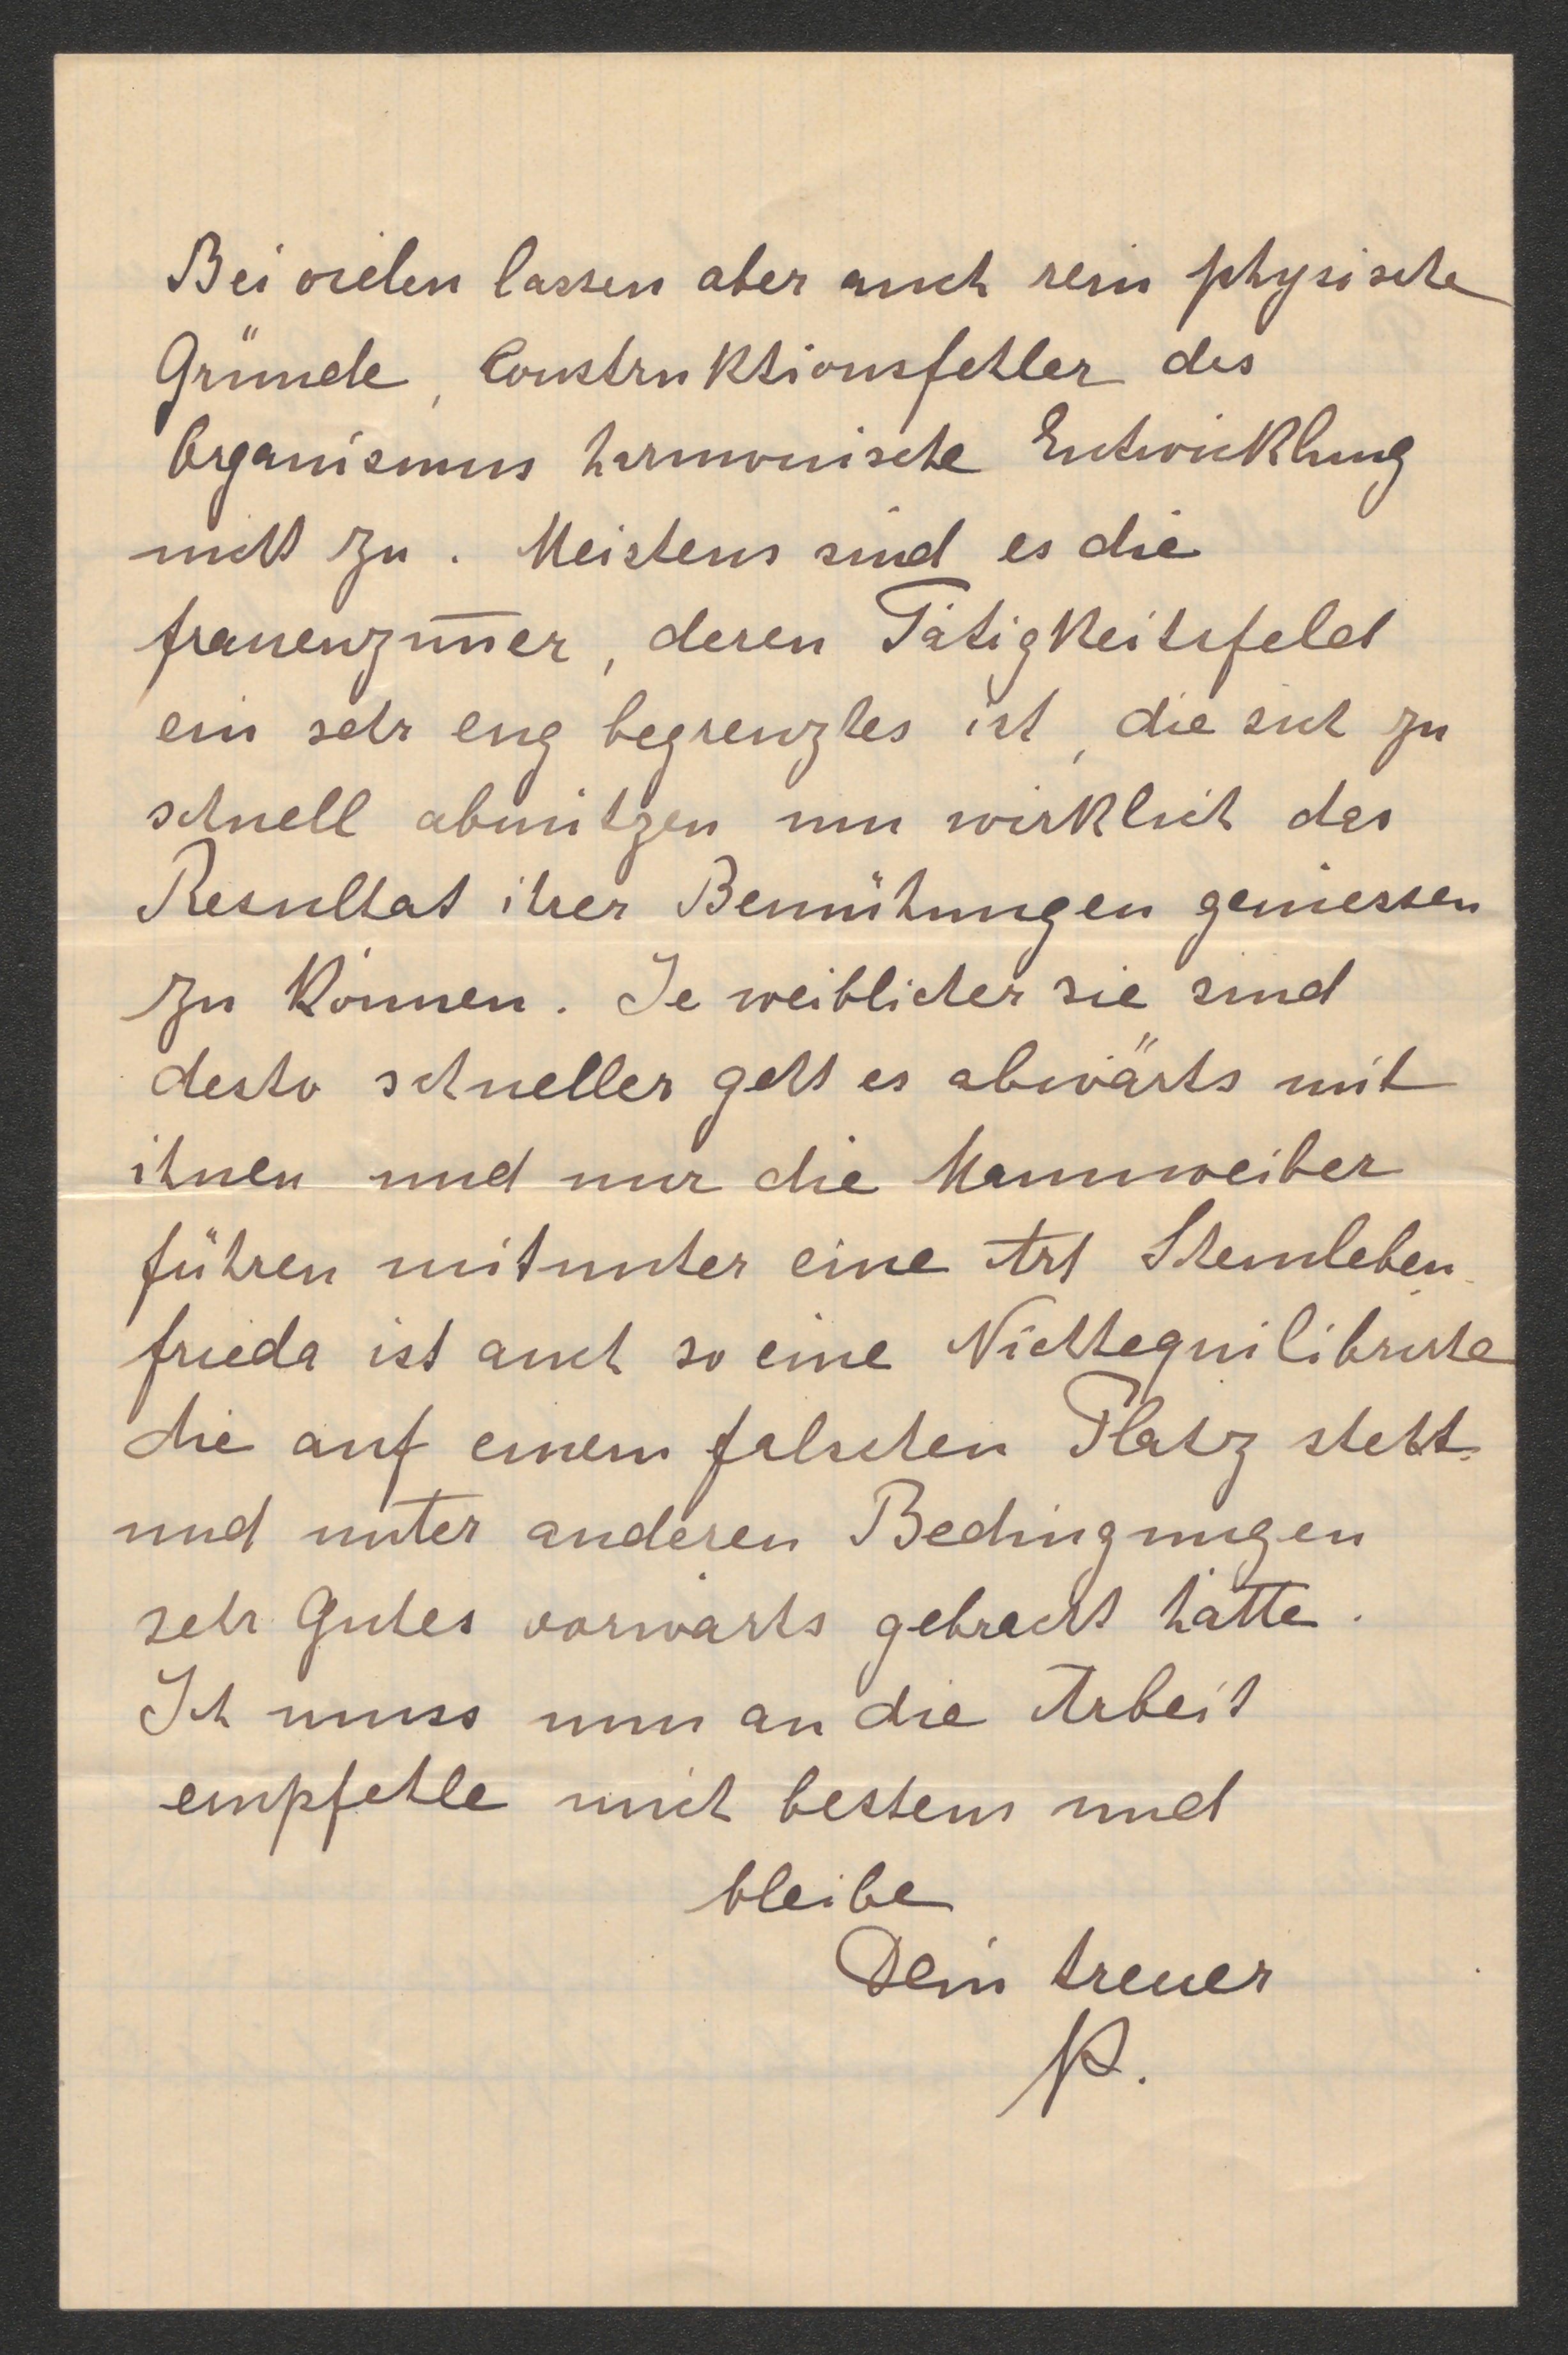 Bei vielen lassen aber auch rein physische
Gründe, Construktionsfehler des
Organismus harmonische Entwicklung
nicht zu. Meistens sind es die
frauenzim̅er, deren Tätigkeitsfeld
ein sehr eng begrenztes ist, die sich zu
schnell abnützen um wirklich das
Resultat ihrer Bemühungen geniessen
zu können. Je weiblicher sie sind
desto schneller geht es abwärts mit
ihnen und nur die Mannweiber
führen mitunter eine Art Scheinleben.
frieda ist auch so eine Nichtequilibriste
die auf einem falschen Platz steht
und unter anderen Bedingungen
sehr Gutes vorwärts gebracht hätte.
Ich muss nun an die Arbeit
empfehle mich bestens und
bleibe
Dein treuer
P.